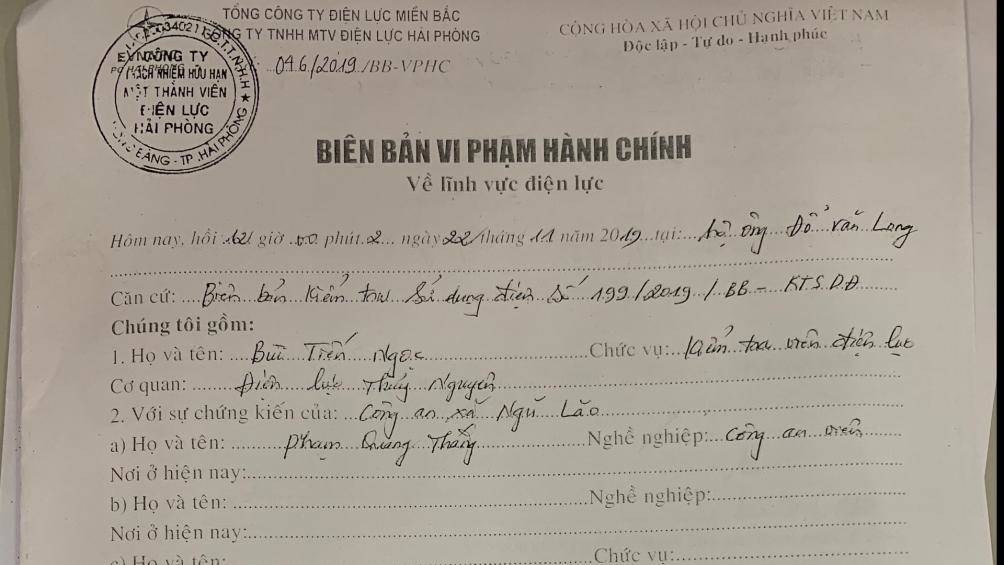 TỔNG CÔNG TY ĐIỆN LỰC MIỀN BẮC
CÔNG TY TNHH MTV ĐIỆN LỰC HẢI PHÒNG
CÔNG TY
TRÁCH NHIỆM HỮU HẠN
MỘT THÀNH VIÊN
ĐIỆN LỰC
HẢI PHÒNG
046/2019/BB-VPHC
CỘNG HÒA XÃ HỘI CHỦ NGHĨA VIỆT NAM
Độc lập - Tự do - Hạnh phúc
BIÊN BẢN VI PHẠM HÀNH CHÍNH
Về lĩnh vực điện lực
Hôm nay, hồi giờ 00 phút ngày 22 tháng 11 năm 2019 tại: hộ ông Đỗ Văn Long
Căn cứ: Biên bản kiểm tra sử dụng điện số 199/2019/BB-KTSDĐ
Chúng tôi gồm:
1. Họ và tên: Bùi Tiến Ngọc Chức vụ: Kiểm tra viên điện lực
Cơ quan: Điện lực Thủy Nguyên
2. Với sự chứng kiến của: Công an xã Ngũ Lão
a) Họ và tên: Phạm Quang Thắng Nghề nghiệp: Công an viên
Nơi ở hiện nay:
b) Họ và tên: Nghề nghiệp:
Nơi ở hiện nay:
c) Họ và tên: Chức vụ: